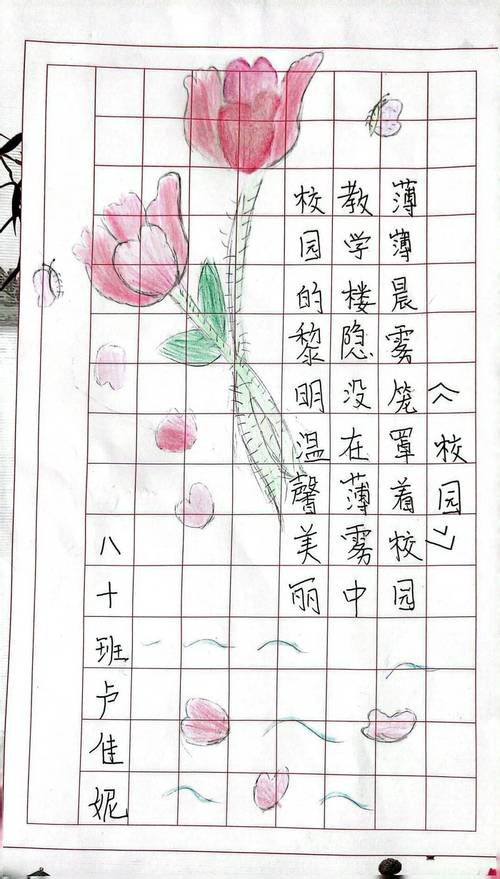 《校园》
薄薄晨雾笼罩着校园
教学楼隐没在薄雾中
校园的黎明温馨美丽
八十班卢佳妮